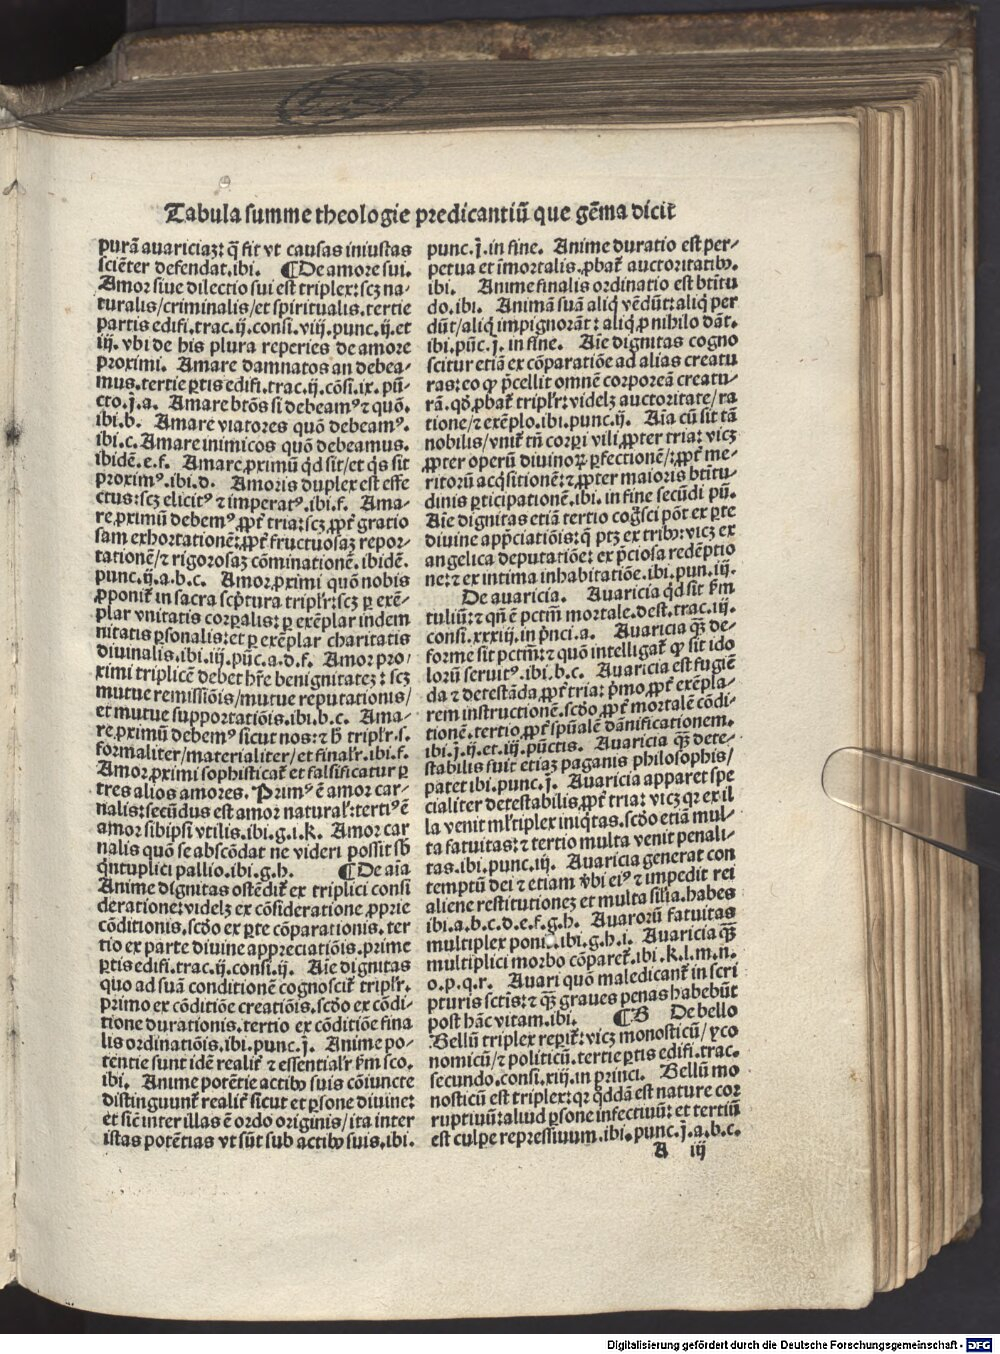 Tabula summe theologie predicantiū que gēma dicit
purā auariciaꝫ: q̄ fit vt causas iniustas
sciēter defendat.ibi. ¶De amore sui.
Amor siue dilectio sui est triplex: scꝫ na-
turalis/criminalis/et spiritualis.tertie
partis edifi.trac.ij.consi.viij.punc.ij.et
iij. vbi de his plura reperies de amore
proximi. Amare damnatos an debea-
mus.tertie ꝑtis edifi.trac.ij.cōsi.ix.pū-
cto.j.a. Amare btōs si debeamꝰ ⁊ quō.
ibi.b. Amare viatores quō debeamꝰ.
ibi.c. Amare inimicos quō debeamus.
ibidē.e.f. Amare ꝓximū qd sit/et qs sit
proximꝰ.ibi.d. Amoris duplex est effe
ctus: scꝫ elicitꝰ ⁊ imperatꝰ.ibi.f. Ama-
re ꝓximū debemꝰ ꝓpt̄ tria: scꝫ ꝓpt̄ gratio
sam exhortationē: ꝓpt̄ fructuosaꝫ repor-
tationē/⁊ rigorosaꝫ cōminationē.ibidē.
punc.ij.a.b.c. Amor ꝓximi quō nobis
ꝓponit̄ in sacra scp̄tura triplr̄: scꝫ ꝑ exē-
plar vnitatis corꝑalis: ꝑ exēplar indem
nitatis ꝑsonalis: et ꝑ exēplar charitatis
diuinalis.ibi.iij.pūc.a.d.f. Amor pro-
ximi triplicē debet hr̄e benignitateꝫ: scꝫ
mutue remissiōis/mutue reputationis/
et mutue supportatiōis.ibi.b.c. Ama-
re ꝓximū debemꝰ sicut nos: ⁊ h̄ triplr̄.s.
formaliter/materialiter/et finalr̄.ibi.f.
Amor ꝓximi sophisticat̄ et falsificatur ꝑ
tres alios amores. Primꝰ ē amor car-
nalis: secūdus est amor naturalr̄: tertiꝰ ē
amor sibipsi vtilis.ibi.g.i.k. Amor car
nalis quō se abscōdat ne videri possit sb̄
qntuplici pallio.ibi.g.h. ¶De aīa
Anime dignitas ostēdit̄ ex triplici consi
deratione: videlꝫ ex cōsideratione ꝓprie
cōditionis.scdo ex ꝑte cōparationis.ter
tio ex parte diuine appreciatiōis.prime
ꝑtis edifi.trac.ij.consi.ij. Aīe dignitas
quo ad suā conditionē cognoscit̄ triplr̄.
primo ex cōditiōe creatiōis.scdo ex cōdi-
tione durationis.tertio ex cōditiōe fina
lis ordinatiōis.ibi.punc.j. Anime po-
tentie sunt idē realit̄ ⁊ essentialr̄ fm sco.
ibi. Anime potētie actibꝰ suis cōiuncte
distinguunt̄ realit̄ sicut et ꝑsone diuine:
et siē inter illas ē ordo originis/ita inter
istas potētias vt sūt sub actibꝰ suis.ibi.
punc.j.in fine. Anime duratio est per-
petua et īmortalis.ꝓbat̄ auctoritatibꝰ.
ibi. Anime finalis ordinatio est btītu
do.ibi. Animā suā aliq vēdūt: aliq per
dūt/aliq impignorāt: aliq ꝓ nihilo dāt.
ibi.pūc.j.in fine. Aīe dignitas cogno
scitur etiā ex cōparatiōe ad alias creatu
ras: eo ꝙ p̄cellit omnē corporeā creatu-
rā.qd ꝓbat̄ triplr̄: videlꝫ auctoritate/ra
tione/⁊ exēplo.ibi.punc.ij. Aīa cū sit tā
nobilis/vnit̄ tn̄ corꝑi vili ꝓpter tria: vicꝫ
ꝓpter operū diuinoꝝ ꝑfectionē/: ꝓpt̄ me-
ritorū acqsitionē: ⁊ ꝓpter maioris btītu-
dinis ꝑticipationē.ibi.in fine secūdi pū.
Aīe dignitas etiā tertio coḡsci pōt ex ꝑte
diuine app̄ciatiōis: q ptꝫ ex tribꝰ: vicꝫ ex
angelica deputatiōe: ex p̄ciosa redēptio
ne: ⁊ ex intima inhabitatiōe.ibi.pun.iij.
De auaricia. Auaricia qd sit fm
tuliū: ⁊ qn̄ ē pctm̄ mortale.dest.trac.iij.
consi.xxxiij.in p̄nci.a. Auaricia qꝫ de-
forme sit pctm̄: ⁊ quō intelligat̄ ꝙ sit ido
lorū seruitꝰ.ibi.b.c. Auaricia est fugiē
da ⁊ detestāda ꝓpt̄ tria: p̄mo ꝓpt̄ exēpla-
rem instructionē.scdo ꝓpt̄ mortalē cōdi-
tionē.tertio ꝓpt̄ spūalē dānificationem.
ibi.j.ij.et.iij.pūctis. Auaricia qꝫ dete-
stabilis fuit etiaꝫ paganis philosophis/
patet ibi.punc.j. Auaricia apparet spe
cialiter detestabilis ꝓpt̄ tria: vicꝫ qꝛ ex il
la venit ml̄tiplex iniqtas.scdo etiā mul-
ta fatuitas: ⁊ tertio multa venit penali-
tas.ibi.punc.iij. Auaricia generat con
temptū dei ⁊ etiam v̄bi eiꝰ ⁊ impedit rei
aliene restitutioneꝫ et multa silia.habes
ibi.a.b.c.d.e.f.g.h. Auarorū fatuitas
multiplex poni.ibi.g.h.i. Auaricia qꝫ
multiplici morbo cōparet̄.ibi.k.l.m.n.
o.p.q.r. Auari quō maledicant̄ in scri
pturis sctīs: ⁊ qꝫ graues penas habebūt
post hāc vitam.ibi. ¶B De bello
Bellū triplex reꝑit̄: vicꝫ monosticū/yco
nomicū/⁊ politicū.tertie ꝑtis edifi.trac.
secundo.consi.xiij.in princi. Bellū mo
nosticū est triplex: qꝛ qddā est nature cor
ruptiuū: aliud ꝑsone infectiuū: et tertiū
est culpe repressiuum.ibi.punc.j.a.b.c.
A iij
Digitalisierung gefördert durch die Deutsche Forschungsgemeinschaft - DFG